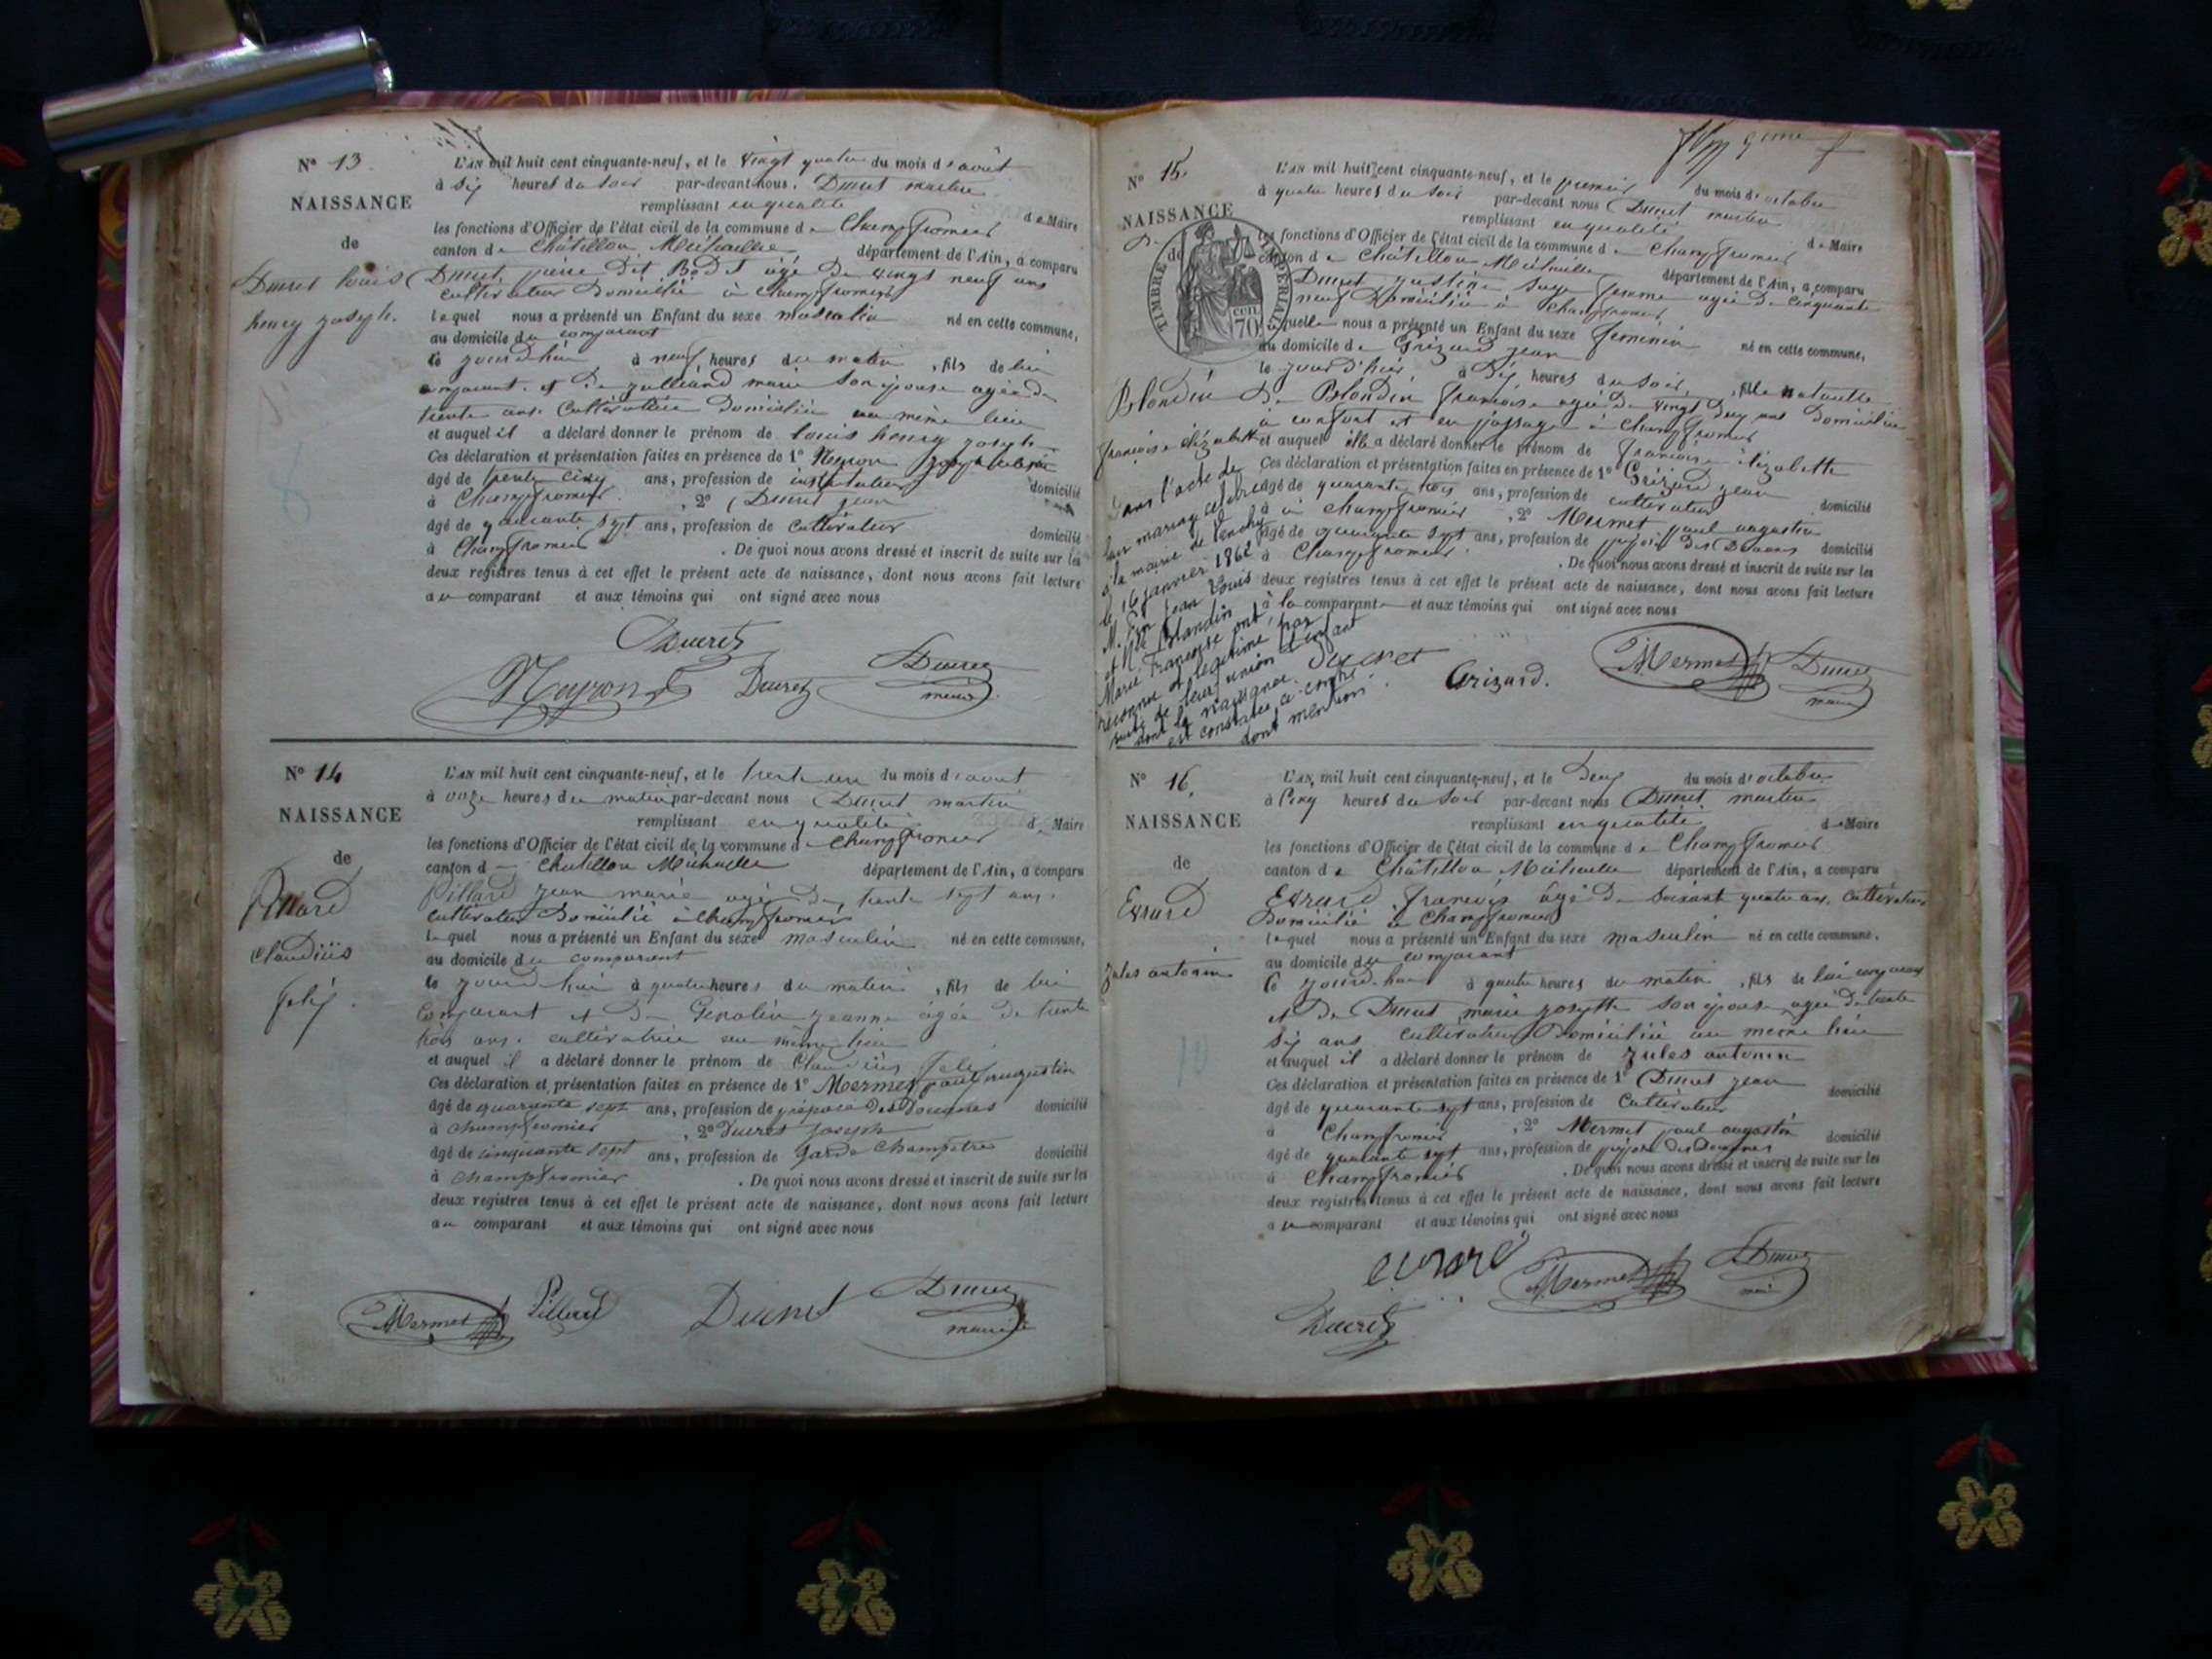 N° 13
NAISSANCE
de
Ducret louis
henry joseph.
L'AN mil huit cent cinquante-neuf, et le vingt quatre du mois d'août
à six heures du soir par-devant nous, Ducret martin
remplissant en qualité de Maire
les fonctions d'Officier de l'état civil de la commune de Champfromier
canton de Châtillon Michaille département de l'Ain, a comparu
Ducret, pierre dit Bodet âgé de vingt neuf ans
cultivateur domicilié à Champfromier
lequel nous a présenté un Enfant du sexe masculin né en cette commune,
au domicile du comparant
ce jourd'hui à neuf heures du matin, fils de lui
comparant et de julliand marie son épouse agée de
trente ans. Cultivatrice domiciliée au même lieu
et auquel il a déclaré donner le prénom de louis henry joseph
Ces déclaration et présentation faites en présence de 1° Neyron joseph
âgé de trente cinq ans, profession de instituteur domicilié
à Champfromier, 2° Ducret jean
âgé de quarante sept ans, profession de cultivateur domicilié
à Champfromier. De quoi nous avons dressé et inscrit de suite sur les
deux registres tenus à cet effet le présent acte de naissance, dont nous avons fait lecture
au comparant et aux témoins qui ont signé avec nous
Ducret
Neyron Ducret Ducret
maire
N° 14
NAISSANCE
de
Pillard
Claudiüs
felix.
L'AN mil huit cent cinquante-neuf, et le trente un du mois d'aout
à onze heures du matin par-devant nous Ducret martin
remplissant en qualité de Maire
les fonctions d'Officier de l'état civil de la commune de Champfromier
canton de Chatillon Michaille département de l'Ain, a comparu
Pillard jean marie agé de trente sept ans.
cultivateur domicilié à Champfromier
lequel nous a présenté un Enfant du sexe masculin né en cette commune,
au domicile du comparant
ce jourd'hui à quatre heures du matin, fils de lui
comparant et de Genolin jeanne âgée de trente
trois ans. cultivatrice au même lieu
et auquel il a déclaré donner le prénom de Claudiüs felix
Ces déclaration et présentation faites en présence de 1° Mermet paul augustin
âgé de quarante sept ans, profession de préposé des Douanes domicilié
à Champfromier, 2° Ducret joseph
âgé de cinquante sept ans, profession de garde Champêtre domicilié
à Champfromier. De quoi nous avons dressé et inscrit de suite sur les
deux registres tenus à cet effet le présent acte de naissance, dont nous avons fait lecture
au comparant et aux témoins qui ont signé avec nous
Mermet Pillard Ducret Ducret
maire
N° 15.
NAISSANCE
de
TIMBRE IMPERIAL
70 cen
Blondin
françoise élizabette
Dans l'acte de
leur mariage célébré
à la mairie de
le 16 janvier 1862
M. Jean Louis
et Mlle Blandin
Marie Françoise ont
reconnu et légitimé par
suite de leur union l'enfant
dont la naissance
est constatée ci-contre
dont mention.
L'AN mil huit cent cinquante-neuf, et le premier du mois d'octobre
à quatre heures du soir par-devant nous Ducret martin
remplissant en qualité de Maire
les fonctions d'Officier de l'état civil de la commune de Champfromier
canton de Châtillon Michaille département de l'Ain, a comparu
Ducret, justine sage femme agée de cinquante
neuf domiciliée à Champfromier
laquelle nous a présenté un Enfant du sexe feminin né en cette commune,
au domicile de Grizard jean
le jour d'hier à dix heures du soir, fille naturelle
de Blondin françoise agée de vingt deux ans domiciliée
à confort et en passage à Champfromier
et auquel elle a déclaré donner le prénom de françoise élizabette
Ces déclaration et présentation faites en présence de 1° Grizard jean
âgé de quarante trois ans, profession de cultivateur domicilié
à Champfromier, 2° Mermet paul augustin
âgé de quarante sept ans, profession de préposé des Douanes domicilié
à Champfromier. De quoi nous avons dressé et inscrit de suite sur les
deux registres tenus à cet effet le présent acte de naissance, dont nous avons fait lecture
à la comparante et aux témoins qui ont signé avec nous
ducret Grizard. Mermet Ducret
maire
N° 16.
NAISSANCE
de
Evrard
jules antonin
L'AN mil huit cent cinquante-neuf, et le deux du mois d'octobre
à cinq heures du soir par-devant nous Ducret martin
remplissant en qualité de Maire
les fonctions d'Officier de l'état civil de la commune de Champfromier
canton de Châtillon Michaille département de l'Ain, a comparu
Evrard, françois âgé de soixant quatre ans, cultivateur
domicilié à Champfromier
lequel nous a présenté un Enfant du sexe masculin né en cette commune.
au domicile du comparant
ce jourd'hui à quatre heures du matin, fils de lui comparant
et de Ducret marie josephte son épouse agée de trente
six ans cultivatrice domiciliée au meme lieu
et auquel il a déclaré donner le prénom de jules antonin
Ces déclaration et présentation faites en présence de 1° Ducret jean
âgé de quarante sept ans, profession de cultivateur domicilié
à Champfromier, 2° Mermet paul augustin
âgé de quarante sept ans, profession de préposé des Douanes domicilié
à Champfromier. De quoi nous avons dressé et inscrit de suite sur les
deux registres tenus à cet effet le présent acte de naissance, dont nous avons fait lecture
au comparant et aux témoins qui ont signé avec nous
evrard Mermet Ducret
Ducret